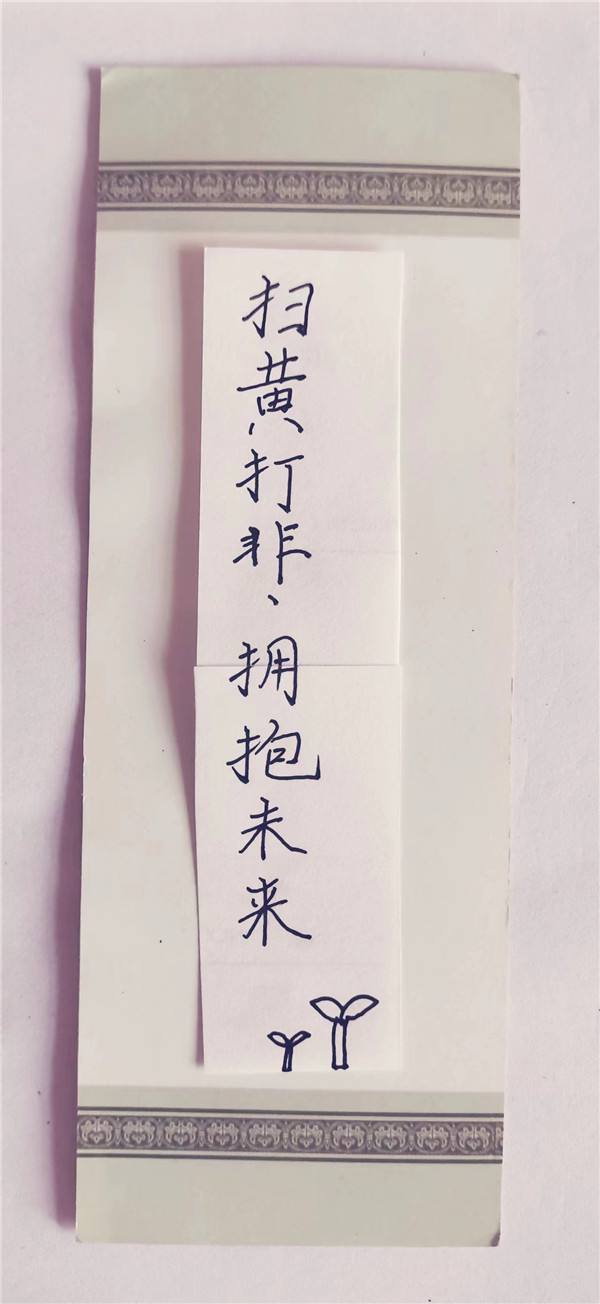 扫黄打非、拥抱未来